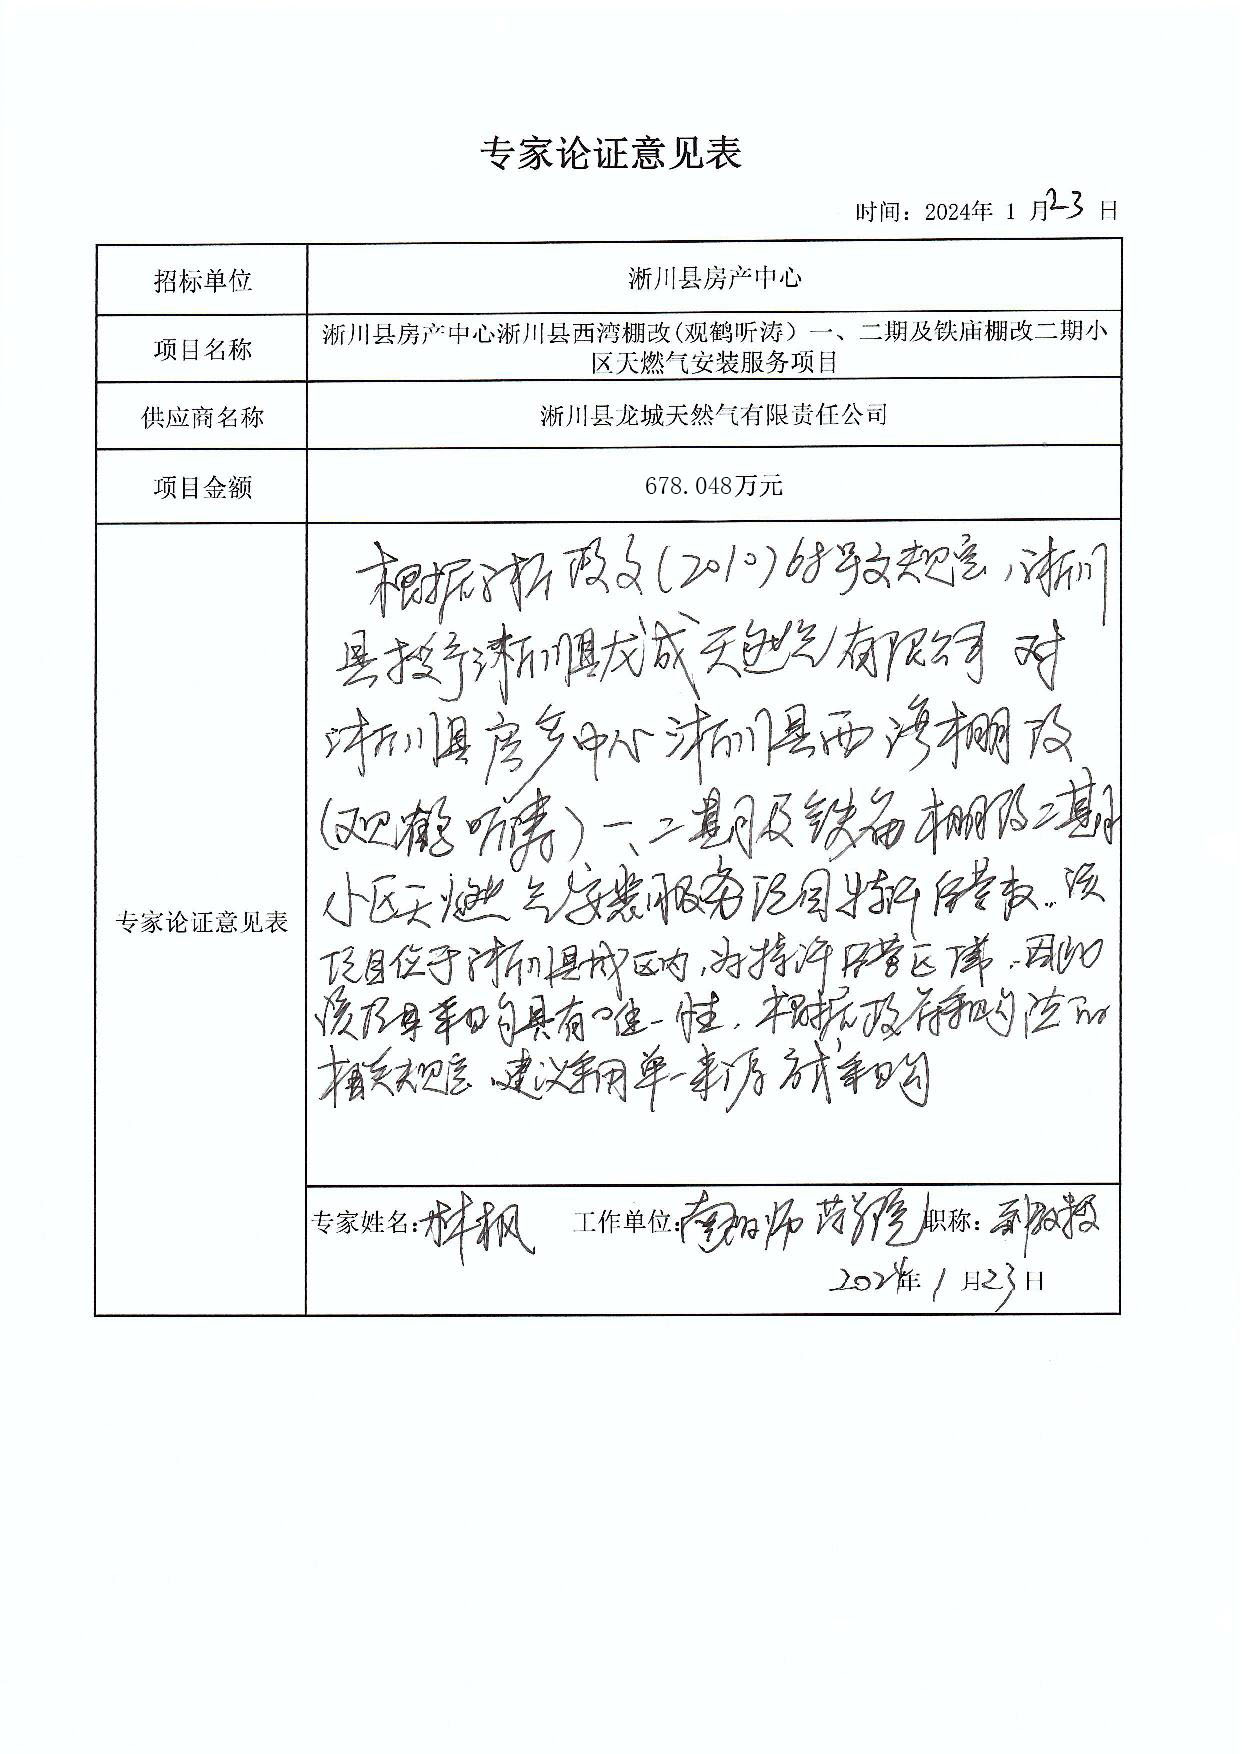 专家论证意见表
时间：2024年 1 月23 日
招标单位
淅川县房产中心
项目名称
淅川县房产中心淅川县西湾棚改(观鹤听涛）一、二期及铁庙棚改二期小
区天燃气安装服务项目
供应商名称
淅川县龙城天然气有限责任公司
项目金额
678.048万元
专家论证意见表
根据淅政文(2010)68号文规定，淅川
县授予淅川县龙成天然气有限公司对
淅川县房产中心淅川县西湾棚改
(观鹤听涛)一、二期及铁庙棚改二期
小区天燃气安装服务项目特许经营权。该
项目位于淅川县城区内，为特许经营区域，因此
该项目采购具有唯一性，根据政府采购法的
相关规定，建议采用单一来源方式采购
专家姓名：林枫 工作单位：南阳师范学院 职称：副教授
2024年 1 月23日